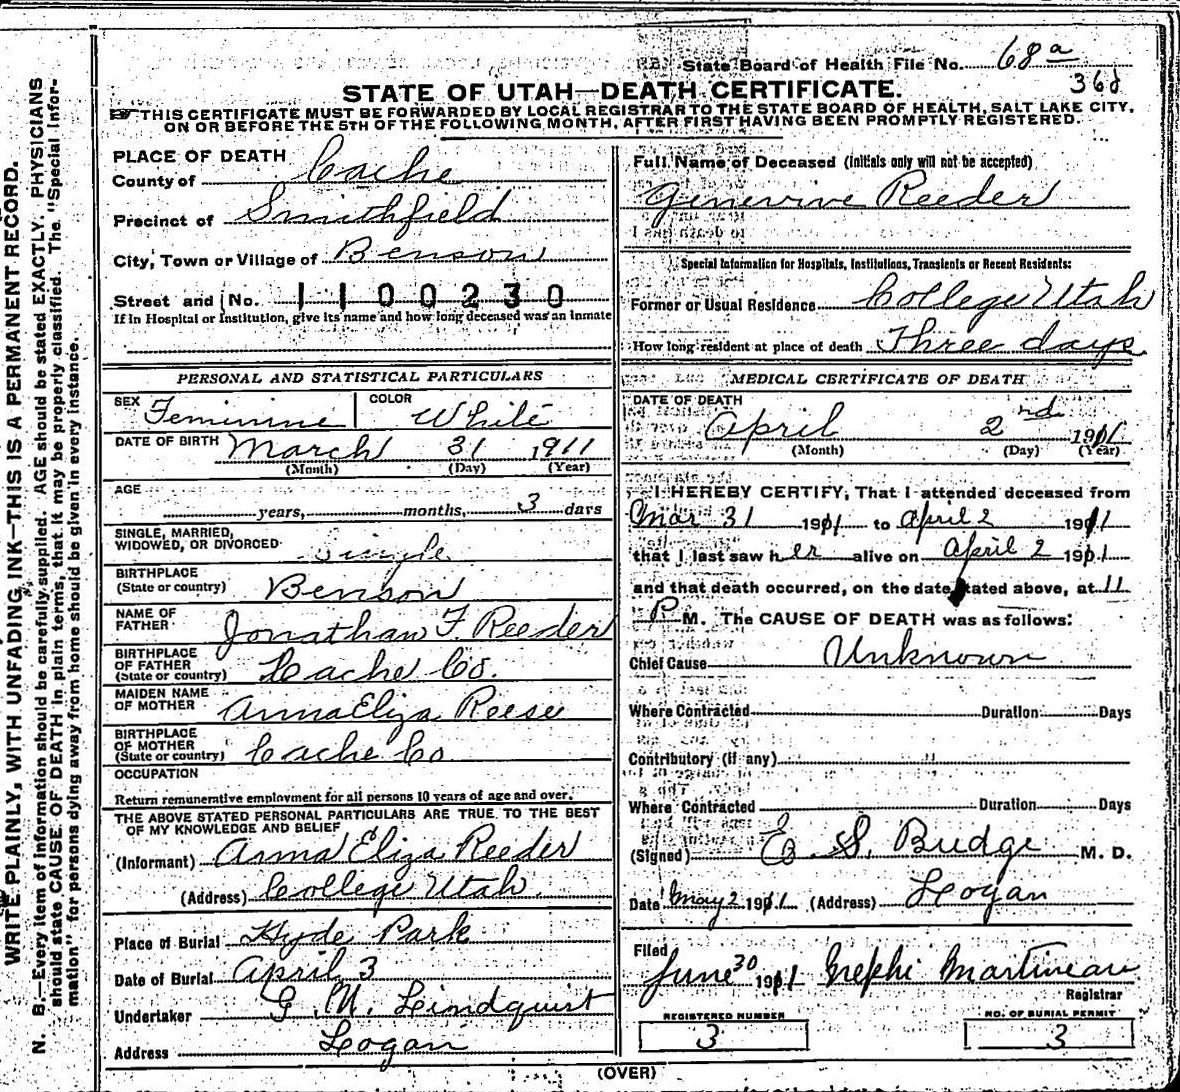 State Board of Health File No. 68a
368
STATE OF UTAH—DEATH CERTIFICATE.
THIS CERTIFICATE MUST BE FORWARDED BY LOCAL REGISTRAR TO THE STATE BOARD OF HEALTH, SALT LAKE CITY,
ON OR BEFORE THE 5TH OF THE FOLLOWING MONTH, AFTER FIRST HAVING BEEN PROMPTLY REGISTERED.
WRITE PLAINLY, WITH UNFADING INK—THIS IS A PERMANENT RECORD.
N. B.—Every item of information should be carefully supplied. AGE should be stated EXACTLY. PHYSICIANS
should state CAUSE OF DEATH in plain terms, that it may be properly classified. The "Special Infor-
mation" for persons dying away from home should be given in every instance.
PLACE OF DEATH
County of Cache
Precinct of Smithfield
City, Town or Village of Benson
Street and No. 1100230
If in Hospital or Institution, give its name and how long deceased was an inmate
PERSONAL AND STATISTICAL PARTICULARS
SEX Feminine COLOR White
DATE OF BIRTH March 31 1911
(Month) (Day) (Year)
AGE
years, months, 3 days
SINGLE, MARRIED,
WIDOWED, OR DIVORCED Single
BIRTHPLACE
(State or country) Benson
NAME OF
FATHER Jonathan F. Reeder
BIRTHPLACE
OF FATHER
(State or country) Cache Co.
MAIDEN NAME
OF MOTHER Anna Eliza Reese
BIRTHPLACE
OF MOTHER
(State or country) Cache Co
OCCUPATION
Return remunerative employment for all persons 10 years of age and over.
THE ABOVE STATED PERSONAL PARTICULARS ARE TRUE TO THE BEST
OF MY KNOWLEDGE AND BELIEF
(Informant) Anna Eliza Reeder
(Address) College Utah
Place of Burial Hyde Park
Date of Burial April 3
Undertaker G. M. Lindquist
Address Logan
Full Name of Deceased (initials only will not be accepted)
Genevive Reeder
Special Information for Hospitals, Institutions, Transients or Recent Residents:
Former or Usual Residence College Utah
How long resident at place of death Three days
MEDICAL CERTIFICATE OF DEATH
DATE OF DEATH
April 2nd 1911
(Month) (Day) (Year)
I HEREBY CERTIFY, That I attended deceased from
Mar 31 1911 to April 2 1911
that I last saw her alive on April 2 1911
and that death occurred, on the date stated above, at 11
P M. The CAUSE OF DEATH was as follows:
Chief Cause Unknown
Where Contracted Duration Days
Contributory (if any)
Where Contracted Duration Days
(Signed) E. S. Budge M. D.
Date May 2 1911 (Address) Logan
Filed
June 30 1911 Nephi Martineau
Registrar
REGISTERED NUMBER
3
NO. OF BURIAL PERMIT
3
(OVER)